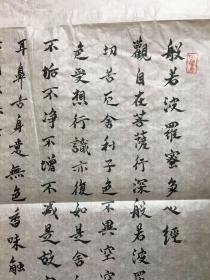 般若波羅蜜多心經
觀自在菩薩行深般若波羅
切苦厄舍利子色不異空空
色受想行識亦復如是舍
不垢不净不增不减是故
耳鼻舌身意無色香味觸